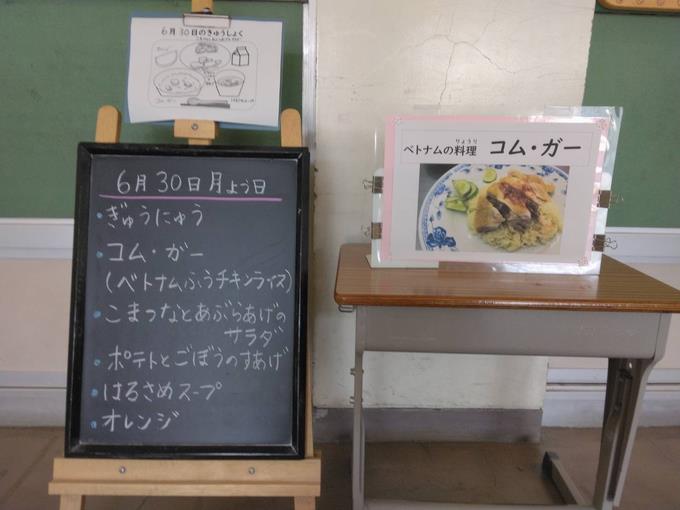 6月30日のきゅうしょく
コム・ガー
6月30日月よう日
・ぎゅうにゅう
・コム・ガー
(ベトナムふうチキンライス)
・こまつなとあぶらあげの
サラダ
・ポテトとごぼうのすあげ
・はるさめスープ
・オレンジ
りょうり
ベトナムの料理 コム・ガー